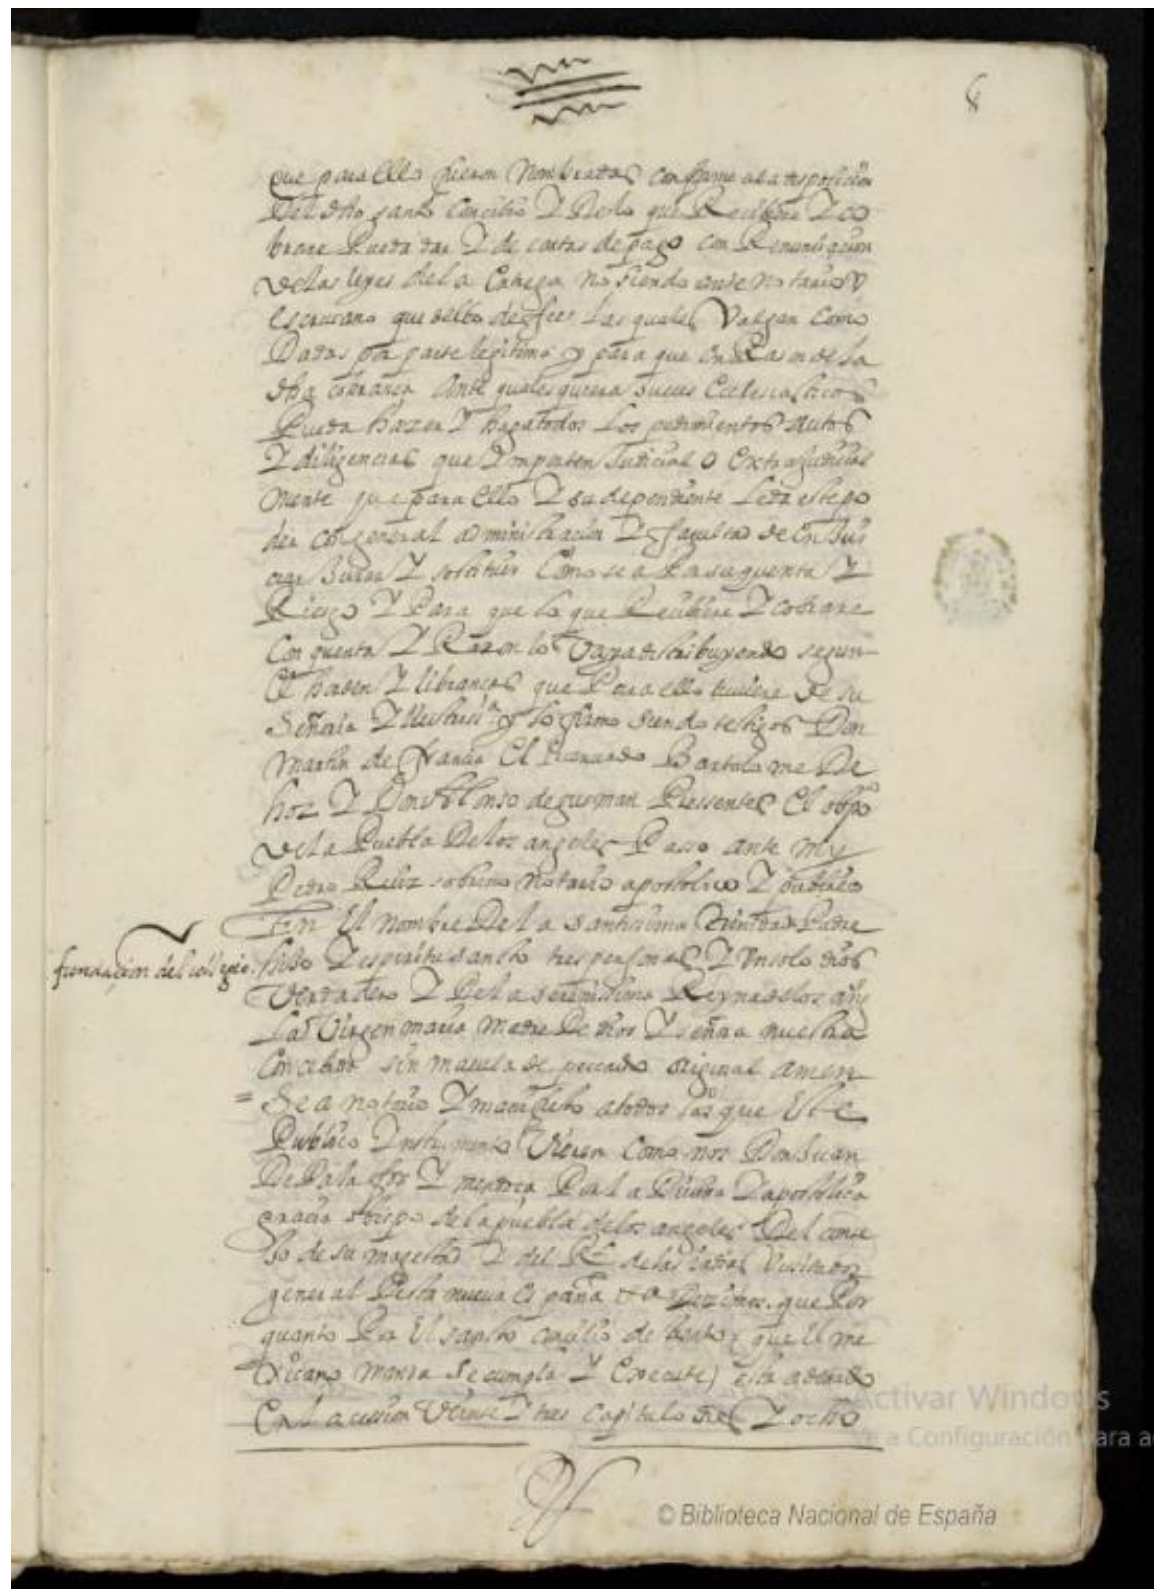 8
que para ello fueren nombradas conforme a la disposicion
del dho santo Concilio Y de lo que Recibiere Y co
brare Pueda dar Y de cartas de pago con Renunciacion
de las leyes de la entrega no siendo ante notario V
escriuano que dello de fee las quales Valgan como
Dadas por parte legitima y para que en Rason de la
dha cobranza ante qualesquiera Jueces Eclesiasticos
Pueda hazer Y haga todos los pedimientos autos
Y diligencias que Ymporten Judicial o extrajudicial
mente que para ello Y su dependiente le da este po
der con general administracion Y facultad de enJui
ciar Jurar Y sostituir Como sea a su quenta Y
Riesgo Y Para que lo que Recibiere Y cobrare
Con quenta Y Razon lo Vaya distribuyendo segun
las Y libranças que Para ello tuuiere de su
Señoria Yllustris.ª y lo firmo siendo testigos Don
Martin de El Licenciado Bartolome De
hoz Y Don Alonso de gusman Pressentes El obpo
de la Puebla De los angeles Passo ante my
Pedro Ruiz sobrino notario apostolico Y publico
En El nombre De la santissima trinidad Padre
fundaçion del collegio.
hijo Y espiritu santo tres personas Y Un solo dios
Verdadero Y De la serenissima Reyna de los ang
La Virgen maria madre De dios Y señora nuestra
Concebida sin macula de peccado original amen
= Sea notorio Y manifiesto a todos los que Este
Publico Instrumento Vieren como nos Don Juan
De Palafox Y mendoça Por la Diuina Y apostolica
gracia obispo de la puebla de los angeles Del conse
jo de su magestad Y del Rl de las indias Visitador
general Desta nueua españa Dezimos que Por
quanto Por El santo concilio de trento (que El me
xicano manda se cumpla Y Execute) esta
En la cession Veinte Y tres capitulo dies Y ocho
Activar Windows
Ve a Configuración para a
© Biblioteca Nacional de España